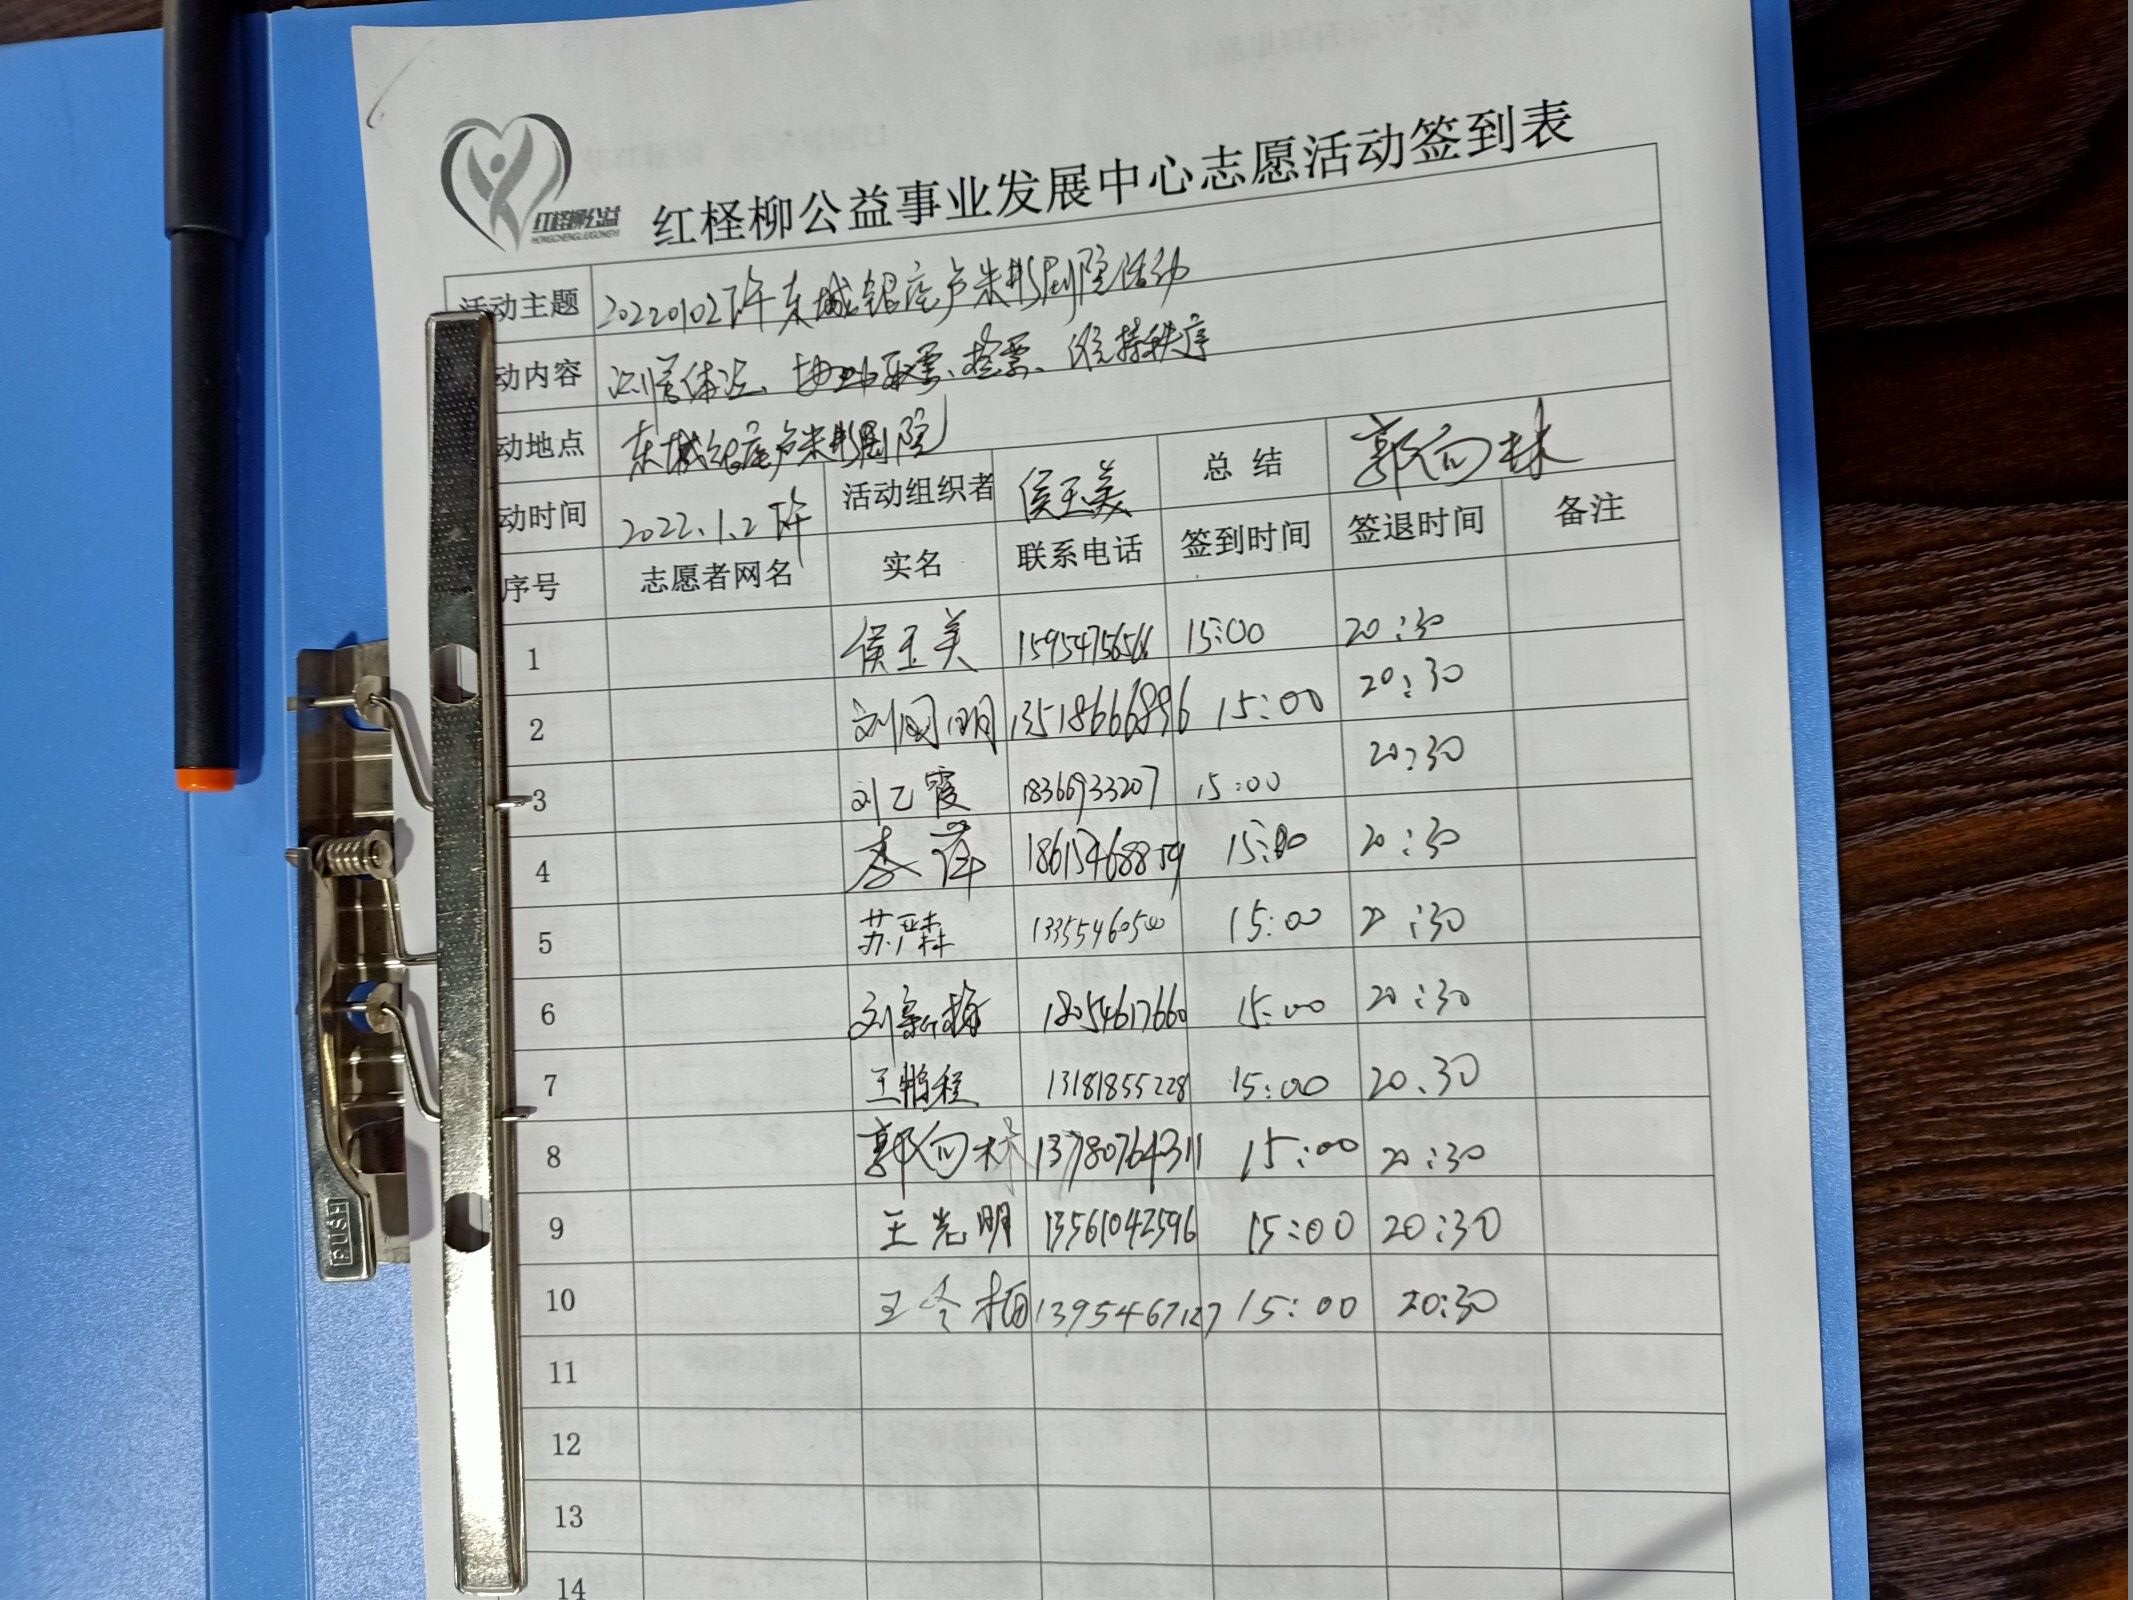 红柽柳公益
HONGCHENGLIUGONGYI
红柽柳公益事业发展中心志愿活动签到表
活动主题 20220102下午东城银座卢米影剧院活动
动内容 测量体温、协助取票、检票、维持秩序
动地点 东城银座卢米影剧院
动时间 2022.1.2下午 活动组织者 侯玉美 总结 郭向林
序号 志愿者网名 实名 联系电话 签到时间 签退时间 备注
1 侯玉美 15:00 20:30
2 刘国明 13518666896 15:00 20:30
3 刘乙霞 18366933207 15:00 20:30
4 李萍 15:00 20:30
5 苏严森 13355460500 15:00 20:30
6 刘新梅 18054617660 15:00 20:30
7 王鹏程 13181855228 15:00 20.30
8 郭向林 13780764311 15:00 20:30
9 王光明 13561042596 15:00 20:30
10 王冬梅 1395467127 15:00 20:30
11
12
13
14
PUSH